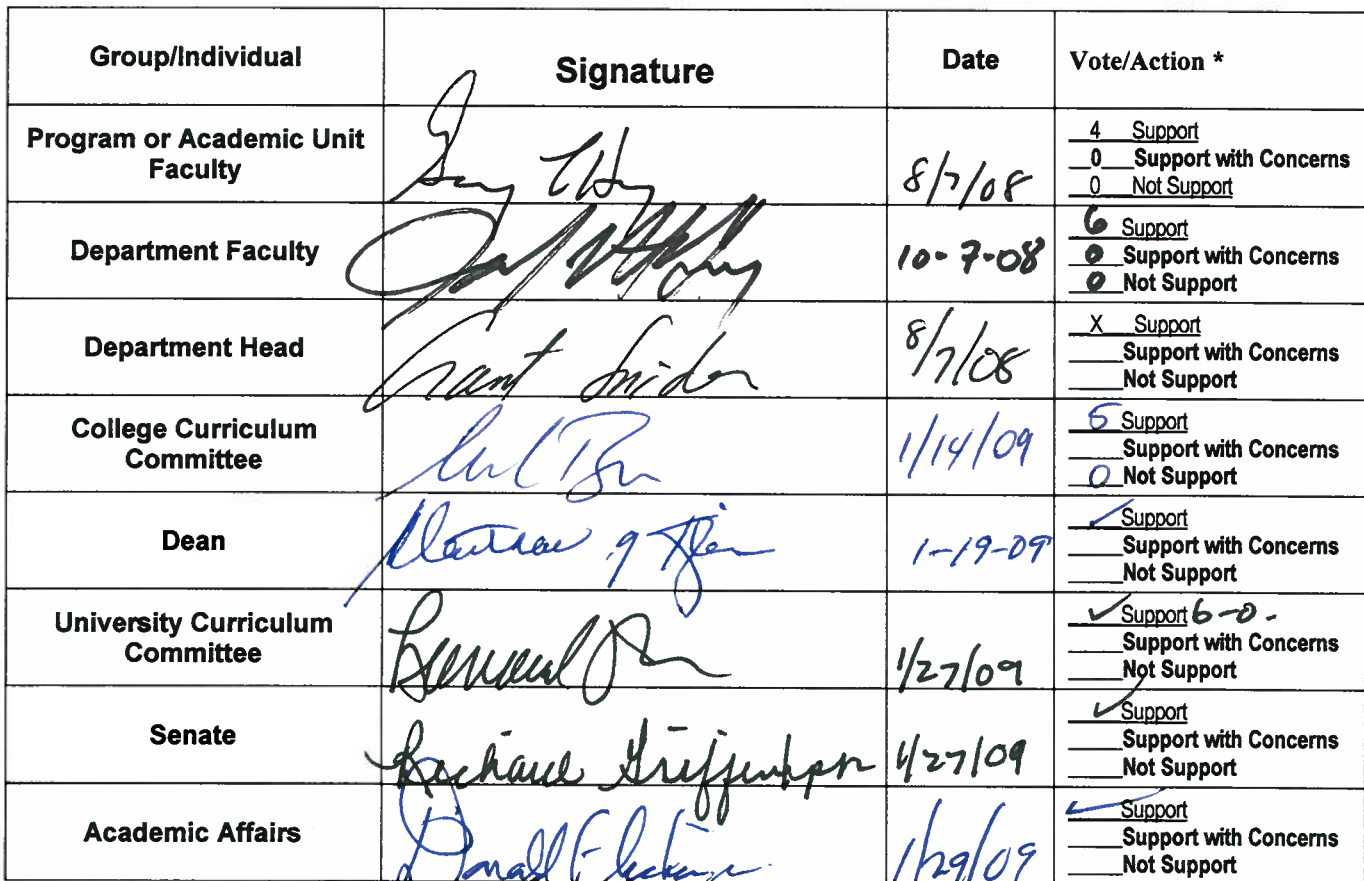 Group/Individual Signature Date Vote/Action *
Program or Academic Unit
Faculty
8/7/08
4 Support
0 Support with Concerns
0 Not Support
Department Faculty
10-7-08
6 Support
0 Support with Concerns
0 Not Support
Department Head
Grant Snider
8/7/08
X Support
Support with Concerns
Not Support
College Curriculum
Committee
1/14/09
5 Support
Support with Concerns
0 Not Support
Dean
1-19-09
✓ Support
Support with Concerns
Not Support
University Curriculum
Committee
1/27/09
✓ Support 6-0.
Support with Concerns
Not Support
Senate
1/27/09
✓ Support
Support with Concerns
Not Support
Academic Affairs
Donald
1/29/09
✓ Support
Support with Concerns
Not Support